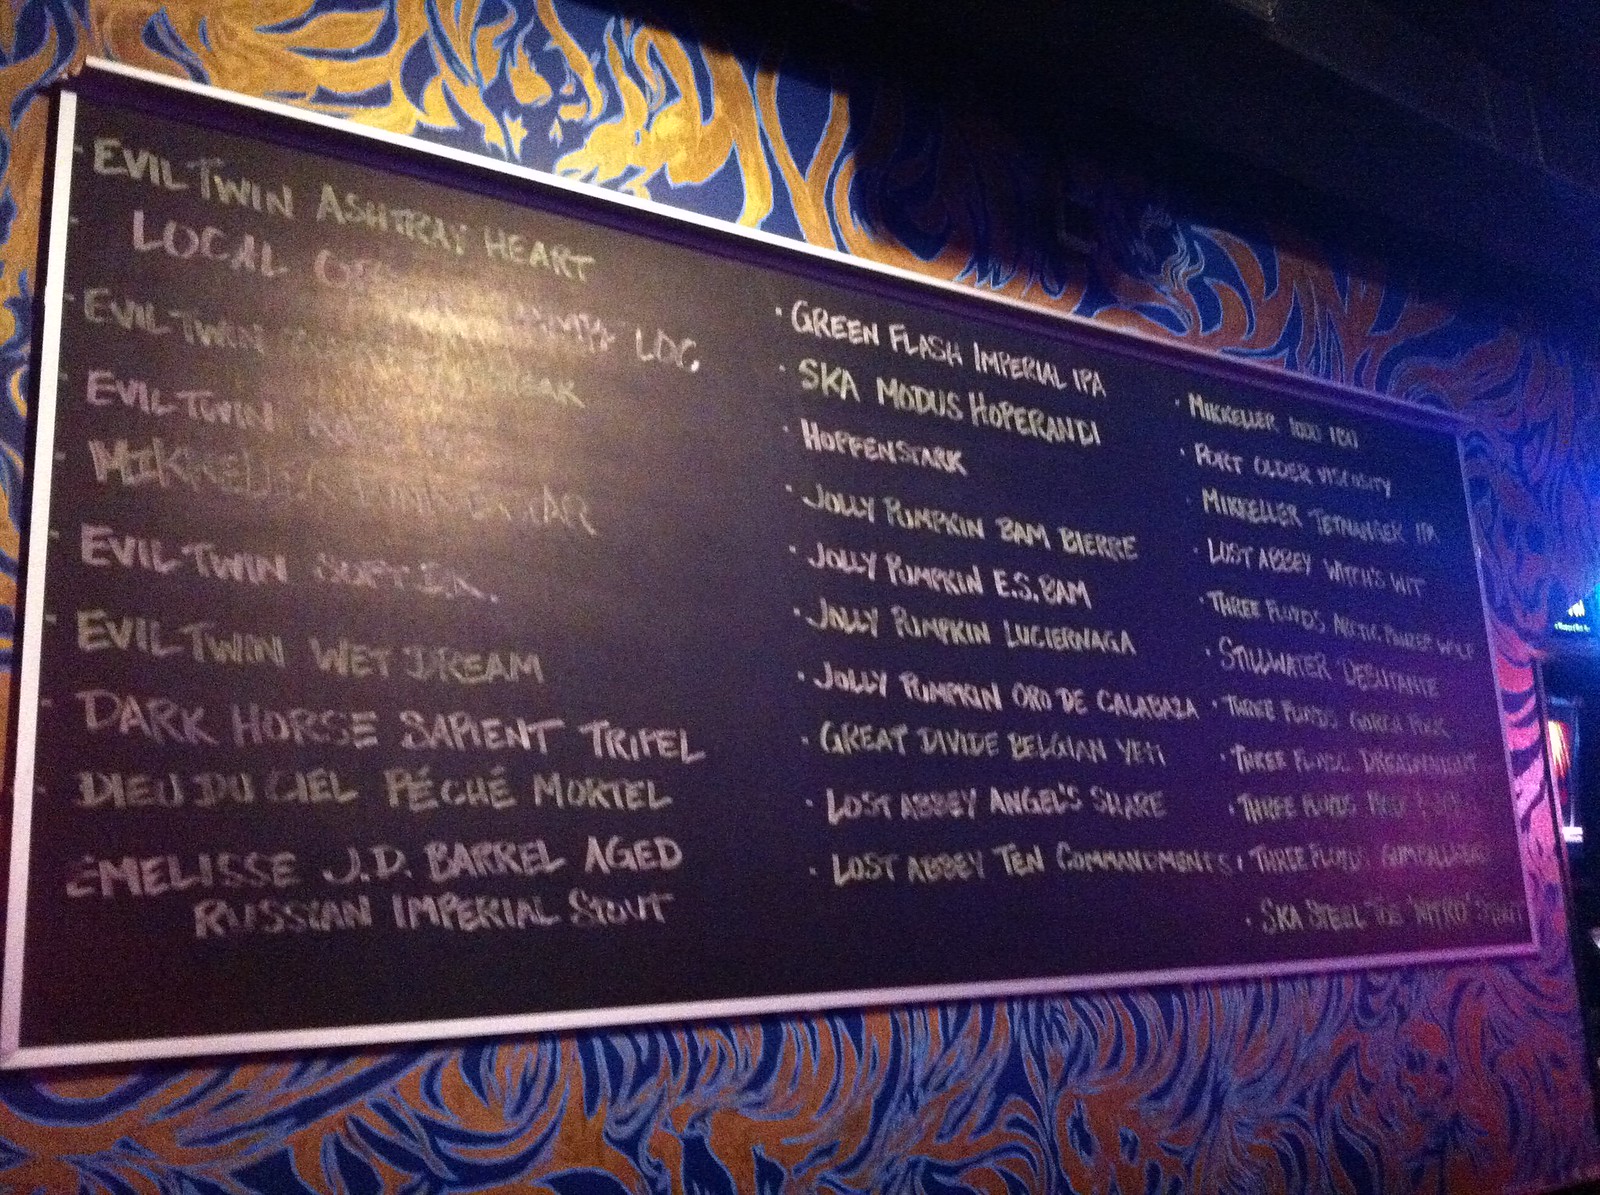 EVIL TWIN ASHTRAY HEART
LOCAL LOG
EVIL TWIN
EVIL TWIN
MIKKELLER
EVIL TWIN SOFT D.K.
EVIL TWIN WET DREAM
DARK HORSE SAPIENT TRIPEL
DIEU DU CIEL PÉCHÉ MORTEL
EMELISSE J.D. BARREL AGED
RUSSIAN IMPERIAL STOUT
· GREEN FLASH IMPERIAL IPA
· SKA MODUS HOPERANDI
· HOPFENSTARK
· JOLLY PUMPKIN BAM BIERRE
· JOLLY PUMPKIN E.S. BAM
· JOLLY PUMPKIN LUCIERNAGA
· JOLLY PUMPKIN ORO DE CALABAZA
· GREAT DIVIDE BELGIAN YETI
· LOST ABBEY ANGEL'S SHARE
· LOST ABBEY TEN COMMANDMENTS
· MIKKELLER 1000 IBU
· PORT OLDER VISCOSITY
· MIKKELLER TETNANGER IPA
· LOST ABBEY WITCH'S WIT
· THREE FLOYDS ARCTIC PANZER WOLF
· STILLWATER DEBUTANTE
· THREE FLOYDS GORCH FOCK
· THREE FLOYDS DREADNAUGHT
· THREE FLOYDS
· THREE FLOYDS GUMBALLHEAD
· SKA STEEL TOE 'NITRO' STOUT